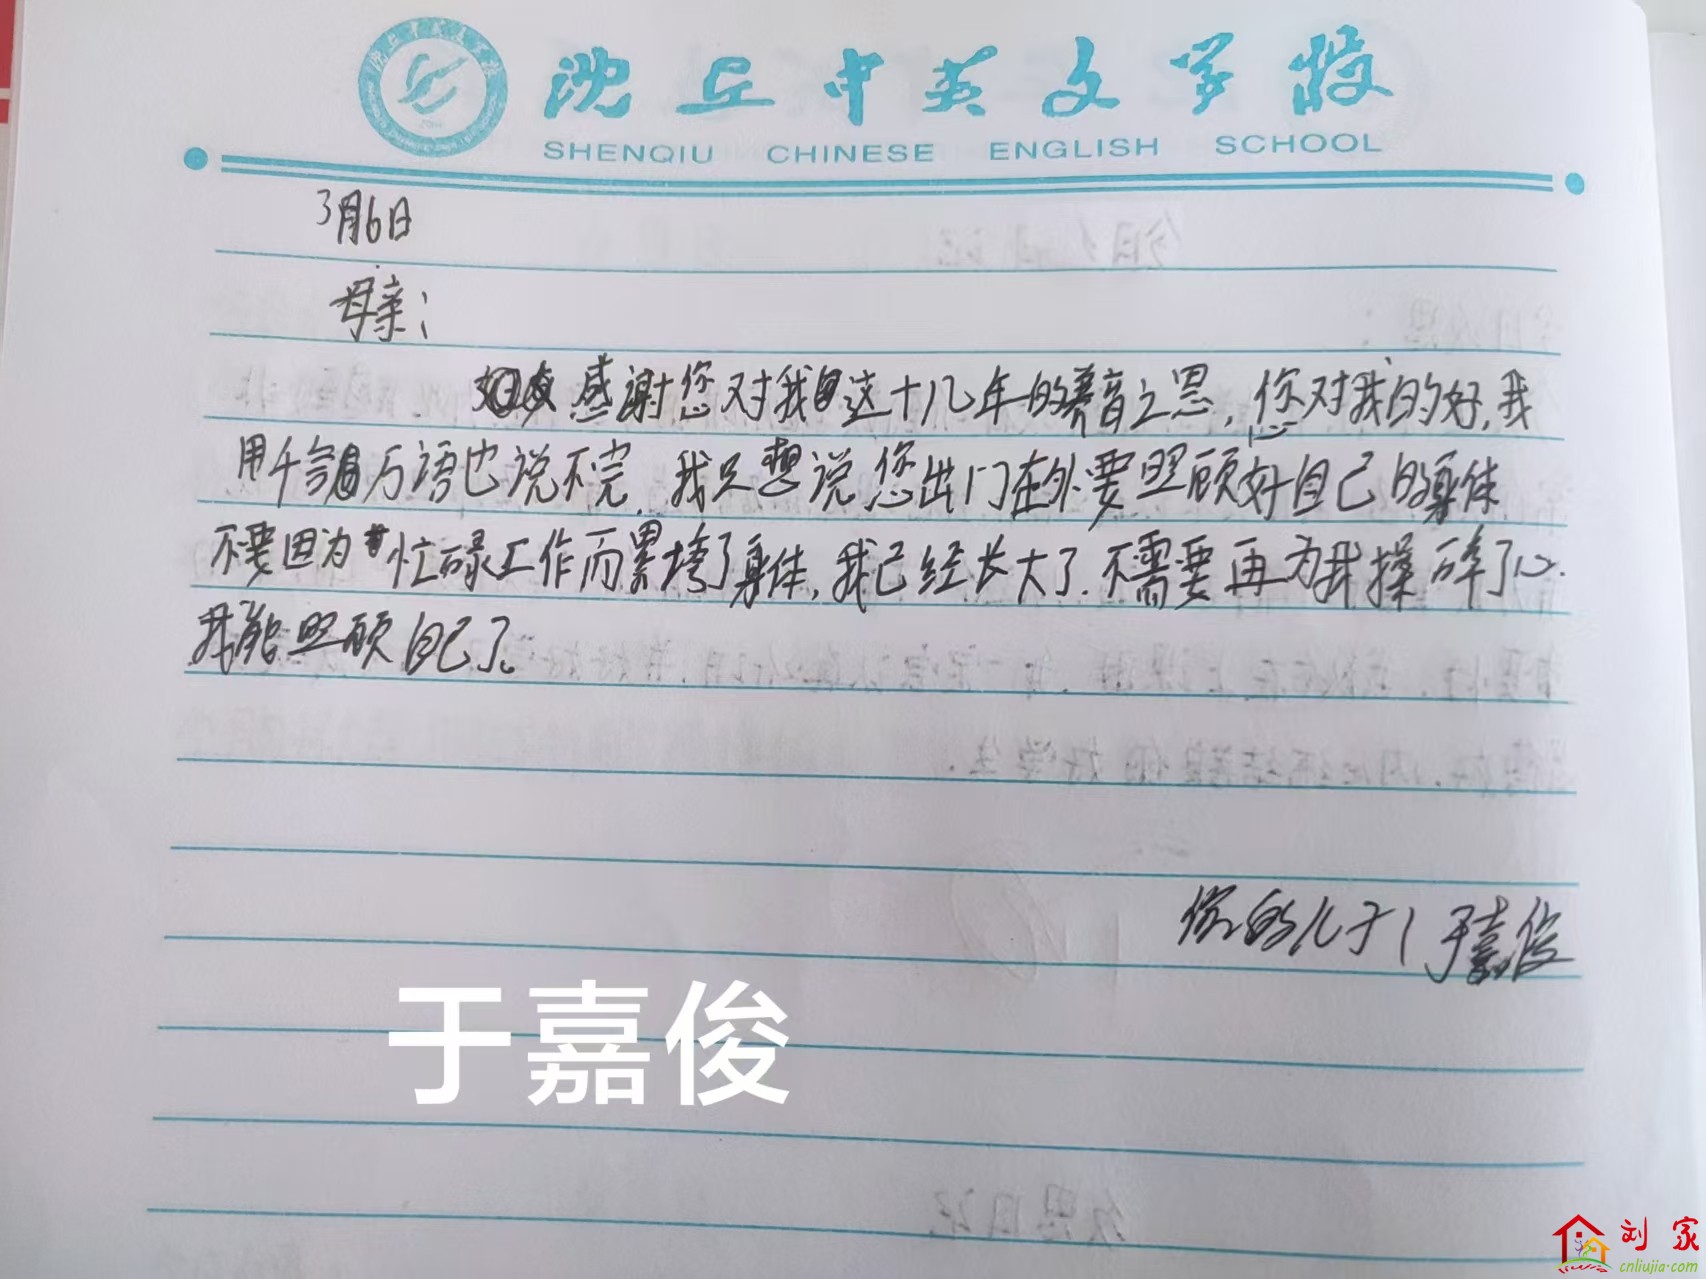 沈丘中英文学校
SHENQIU CHINESE ENGLISH SCHOOL
3月6日
母亲:
感谢您对我这十几年的养育之恩,您对我的好,我
用千言万语也说不完,我只想说您出门在外要照顾好自己的身体
不要因为忙碌工作而累垮了身体,我已经长大了.不需要再为我操碎了心.
我能照顾自己了。
你的儿子:于嘉俊
于嘉俊
刘家
cnliujia·com